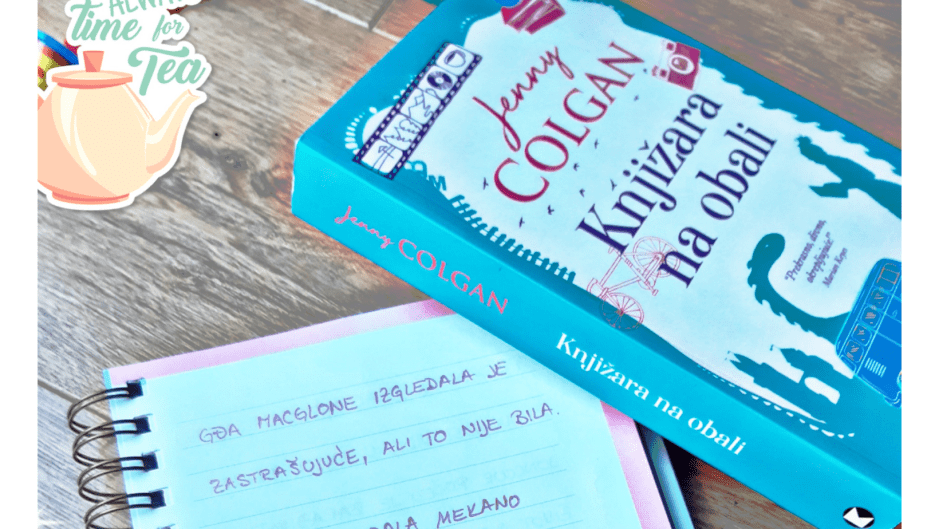 ALWAYS
time for
Tea
Jenny
COLGAN
Knjižara
na obali
"Prekrasna, divna,
okrepljujuća!"
Jenny COLGAN
Knjižara na obali
GĐA MACGLONE IZGLEDALA JE
ZASTRAŠUJUĆE, ALI TO NIJE BILA.
MEKANO